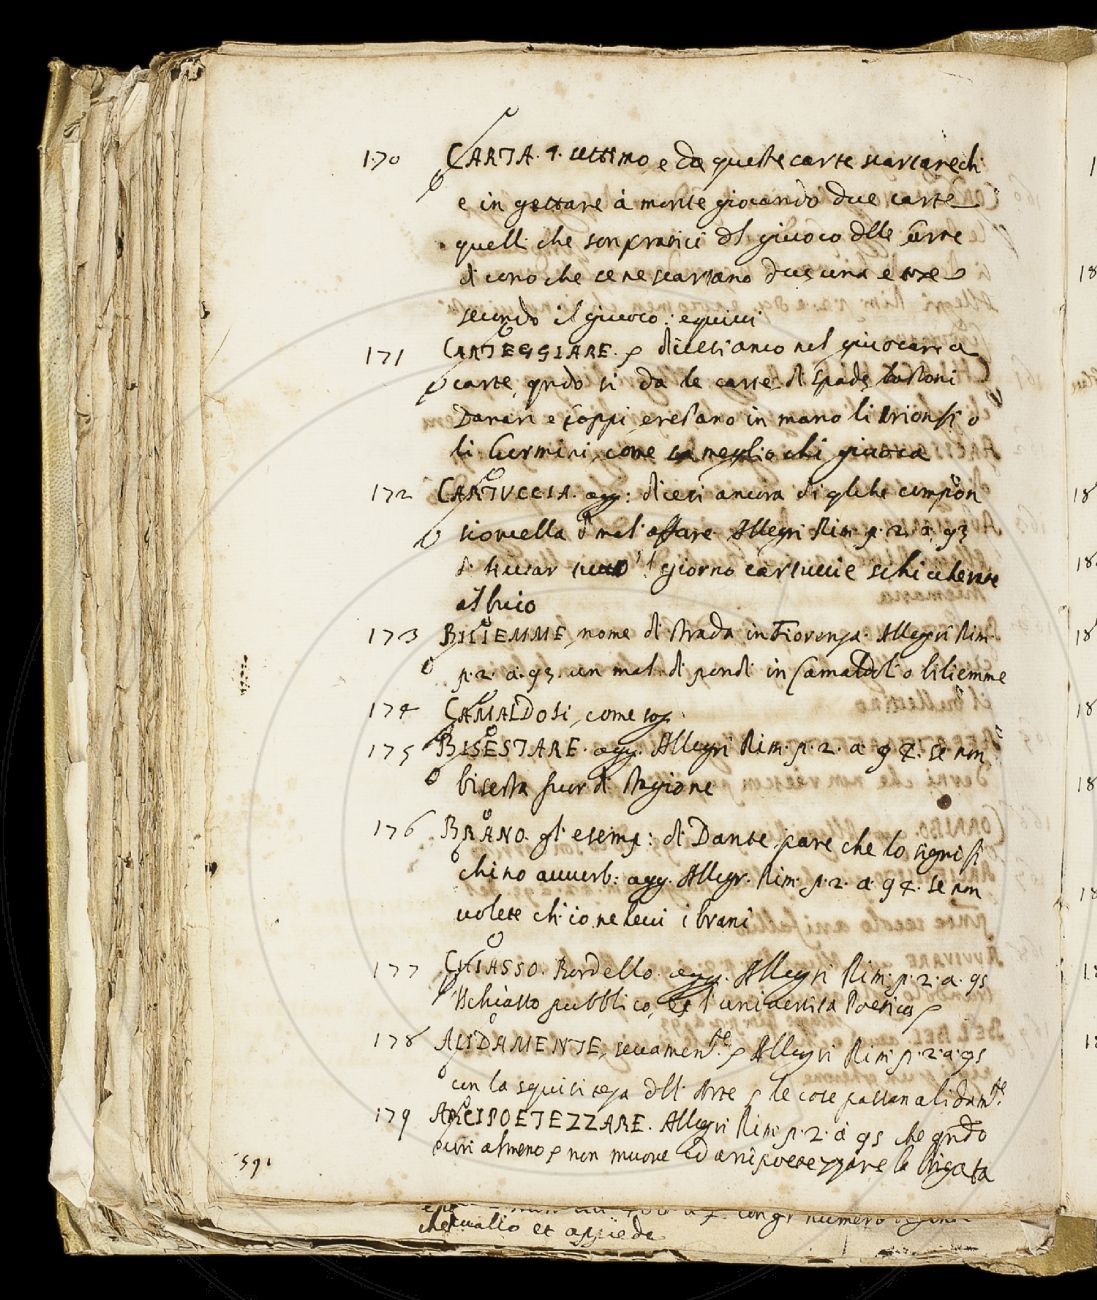 170 CARTA. §. ultimo, e da queste carte scartare ch'
e in gettare à monte giocando due carte
quelli che son pratici del giuoco delle
dicono che se ne scartano due, una e tre
secondo il giuoco.
171 CARTEGGIARE. dicesi anco nel giuocare a
carte, qndo si da le carte di spade, bastoni
Danari e Coppi, e restano in mano li trionfi o
li Germini, come sa meglio chi giuoca
172 CARTUCCIA. agg: dicesi ancora di qlche compon
sioncella di mal'affare. Allegri Rim. p. 2. a. 93
giorno cartuccie schiccherate
al buio
173 BILIEMME, nome di strada in Fiorenza. Allegri Rim.
p. 2. a. 93. un mal. di pondi in Camaldoli o biliemme
174 CAMALDOSI, come sop.
175 BISESTARE. agg. Allegri Rim. p. 2. a 94. se non
bisesta fuor di stagione
176 BRANO. gl' esemp: di Dante, pare che lo signifi
chino avverb: agg. Allegr. Rim. p. 2. a 94. se non
volete ch'io ne levi i brani
177 CHIASSO. Bordello. agg. Allegri Rim. p. 2. a. 95
chiasso pubblico, e l'università Poetica
178 ALIDAMENTE, seccamente. Allegri Rim. p. 2. a 95
con la squisitezza dell' Arte le cose passan alidamte.
179 ARCIPOETEZZARE. Allegri Rim. p. 2. à 95 che qndo
almeno non muove ad arcipoetezzare la brigata
591
numero
chetuallo et appiede